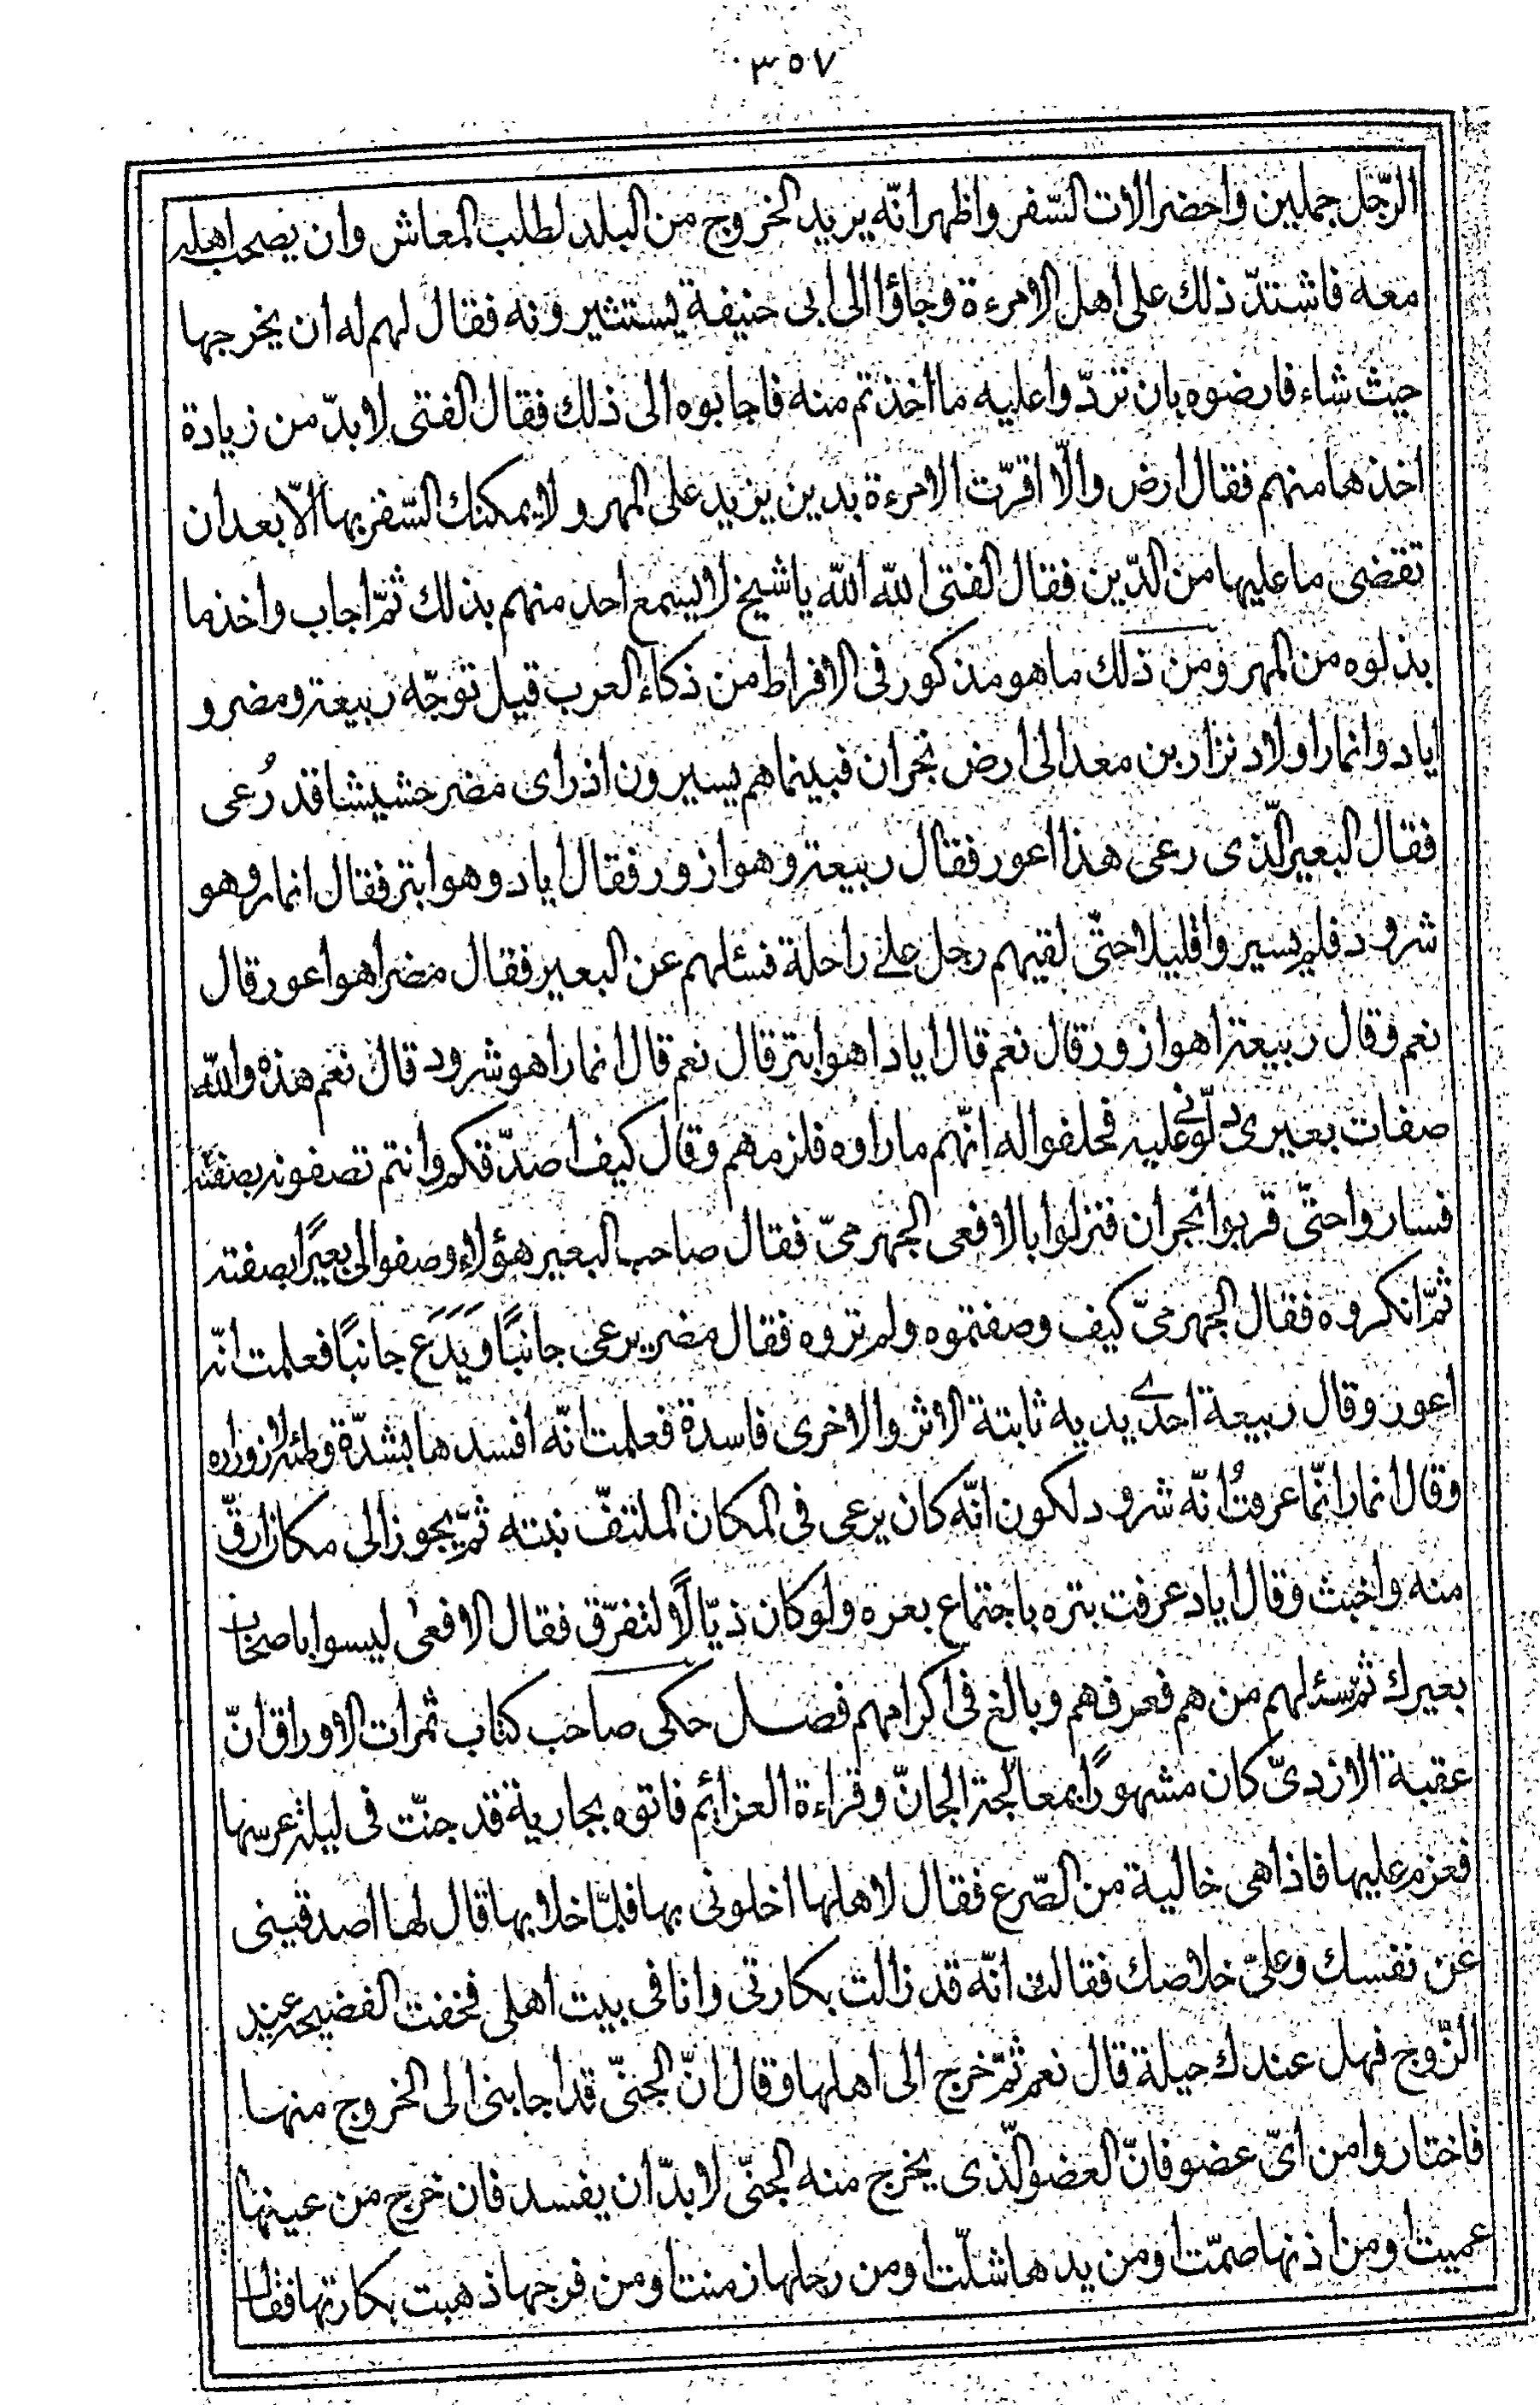 ٣٥٧
الرّجل جملين واحضر الات السّفر واظهر انّه يريد الخروج من البلد لطلب المعاش وان يصحب اهله
معه فاشتدّ ذلك على اهل الامرءة وجاؤا الى ابى حنيفة يستشيرونه فقال لهم له ان يخرجها
حيث شاء فارضوه بان تردّوا عليه ما اخذتم منه فاجابوه الى ذلك فقال الفتى لابدّ من زيادة
اخذها منهم فقال ارض والّا اقرّت الامرءة بدين يزيد على المهر ولا يمكنك السّفر بها الّا بعد ان
تقضى ما عليها من الدّين فقال الفتى اللّه اللّه يا شيخ لا يسمع احد منهم بذلك ثمّ اجاب واخذ ما
بذلوه من المهر ومن ذلك ما هو مذكور فى الافراط من ذكاء العرب قيل توجّه ربيعة ومضر و
اياد وانمار اولاد نزار بن معد الى ارض نجران فبينما هم يسيرون اذ راى مضر حشيشا قد رُعى
فقال البعير الّذى رعى هذا اعور فقال ربيعة وهو ازور فقال اياد وهو ابتر فقال انمار وهو
شرود فلم يسيروا قليلا حتّى لقيهم رجل على راحلة فسئلهم عن البعير فقال مضر اهو اعور قال
نعم وقال ربيعة اهو ازور قال نعم قال اياد اهو ابتر قال نعم قال انمار اهو شرود قال نعم هذه واللّه
صفات بعيرى دلّونى عليه فحلفوا له انّهم ما راوه فلزمهم وقال كيف اصدّقكم وانتم تصفونه بصفته
فساروا حتّى قربوا نجران فنزلوا بالافعى الجهرمىّ فقال صاحب البعير هؤلاء وصفوا لى بعيرًا بصفته
ثمّ انكروه فقال الجهرمىّ كيف وصفتموه ولم تروه فقال مضر يرعى جانبًا ويَدَع جانبًا فعلمت انّه
اعور وقال ربيعة احدى يديه ثابتة الاثر والاخرى فاسدة فعلمت انّه افسدها بشدّة وطئه لازوراره
وقال انمار انّما عرفتُ انّه شرود لكون انّه كان يرعى فى المكان الملتفّ نبته ثمّ يجوز الى مكان ارقّ
منه واخبث وقال اياد عرفت بتره باجتماع بعره ولو كان ذيّالًا لتفرّق فقال الافعى ليسوا باصحاب
بعيرك ثم سئلهم من هم فعرفهم وبالغ فى اكرامهم فصــل حكى صاحب كتاب ثمرات الاوراق انّ
عقبة الازدىّ كان مشهورًا بمعالجة الجانّ وقراءة العزائم فاتوه بجارية قد جنّت فى ليلة عرسها
فعزم عليها فاذا هى خالية من الصّرع فقال لاهلها اخلونى بها فلمّا خلا بها قال لها اصدقينى
عن نفسك وعلىّ خلاصك فقالت انّه قد زالت بكارتى وانا فى بيت اهلى فخفت الفضيحة عند
الزّوج فهل عندك حيلة قال نعم ثمّ خرج الى اهلها وقال انّ الجنّى قد اجابنى الى الخروج منها
فاختاروا من اىّ عضو فانّ العضو الّذى يخرج منه الجنّى لابدّ ان يفسد فان خرج من عينها
عميت او من اذنها صمّت او من يدها شلّت او من رجلها زمنت او من فرجها ذهبت بكارتها فقال